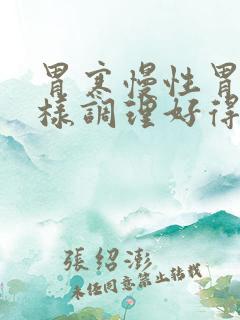 胃寒慢性胃
樣調理好得
張紹澎
未经同意禁止转载